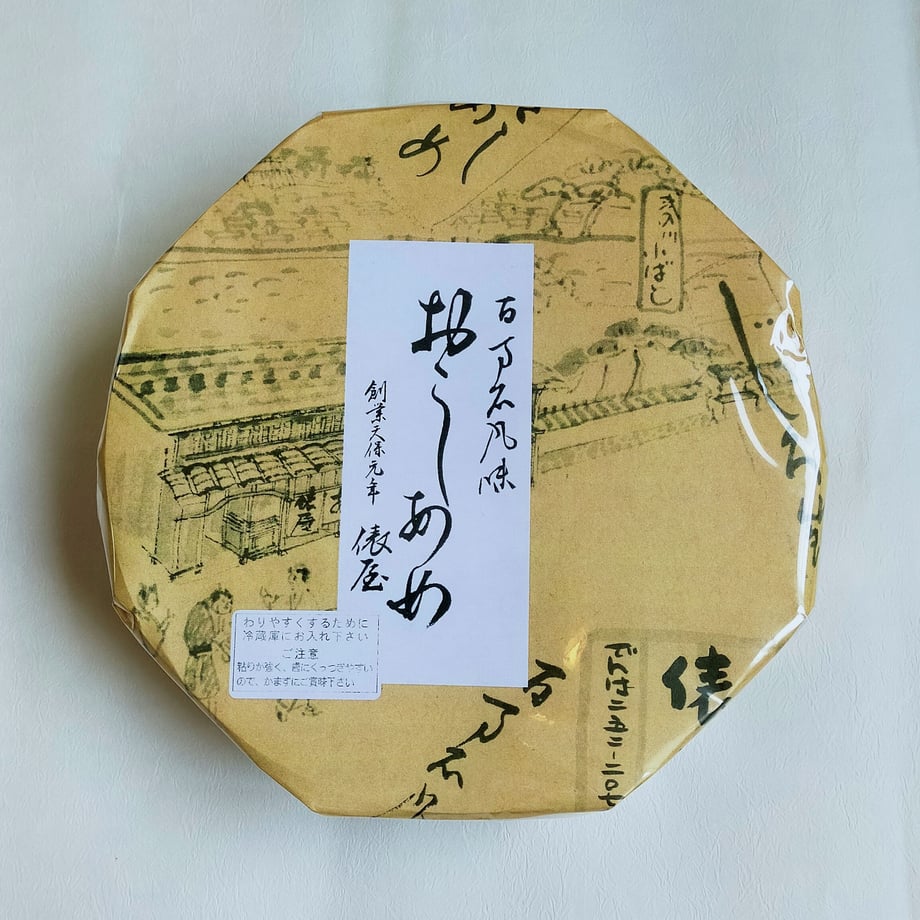 百万石風味
おこしあめ
創業天保元年
俵屋
わりやすくするために
冷蔵庫にお入れ下さい
ご注意
粘りが強く、歯にくっつきやすい
ので、かまずにご賞味下さい
浅の川小ばし
俵屋
百万石
俵
でんは二五二ー二〇七